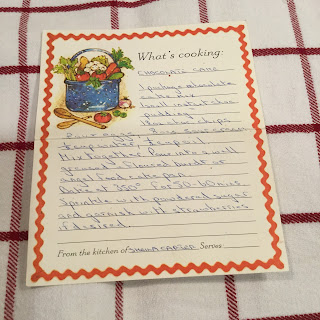 What's cooking:
CHOCOLATE CAKE
1 package chocolate
cake mix
1 small instant
pudding
chips
4 eggs, 8 oz sour cream
water, oil
Mix together. Pour into a well
greased & floured bundt or
angel food cake pan.
Bake at 350° for 50-60 mins
Sprinkle with powdered sugar
and garnish with strawberries
if desired.
From the kitchen of Serves: